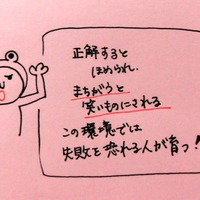 正解すると
ほめられ、
まちがうと
笑いものにされる
この環境では
失敗を恐れる人が育つ!